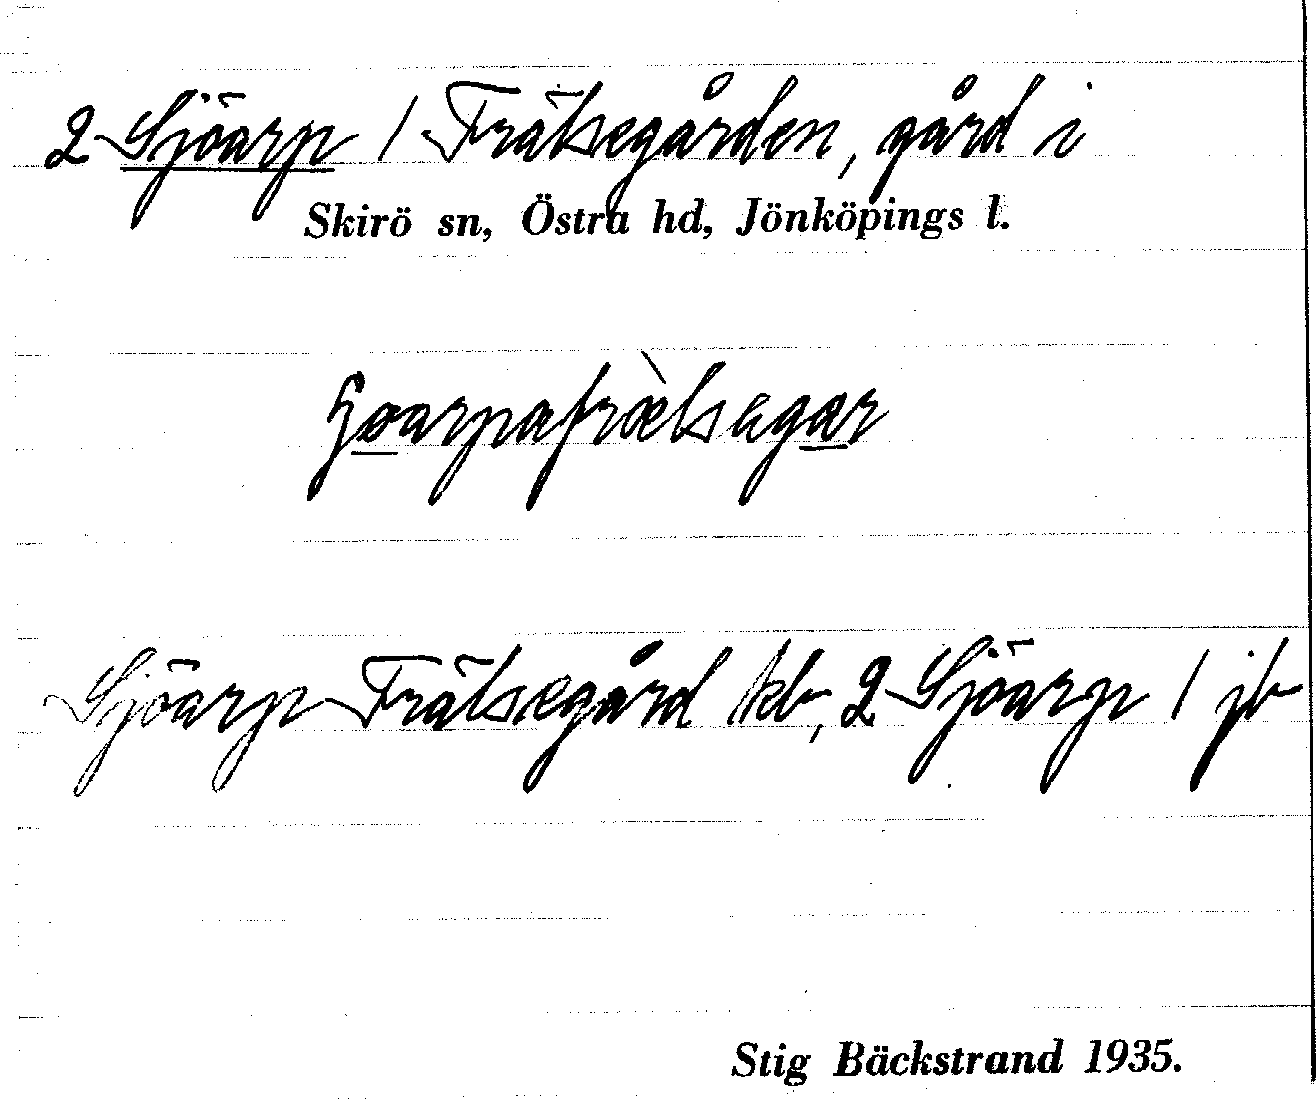 2 Sjöarp / Frälsegården, gård i
Skirö sn, Östra hd, Jönköpings l.
Sjöarp Frälsegård kb, 2 Sjöarp / jb
Stig Bäckstrand 1935.